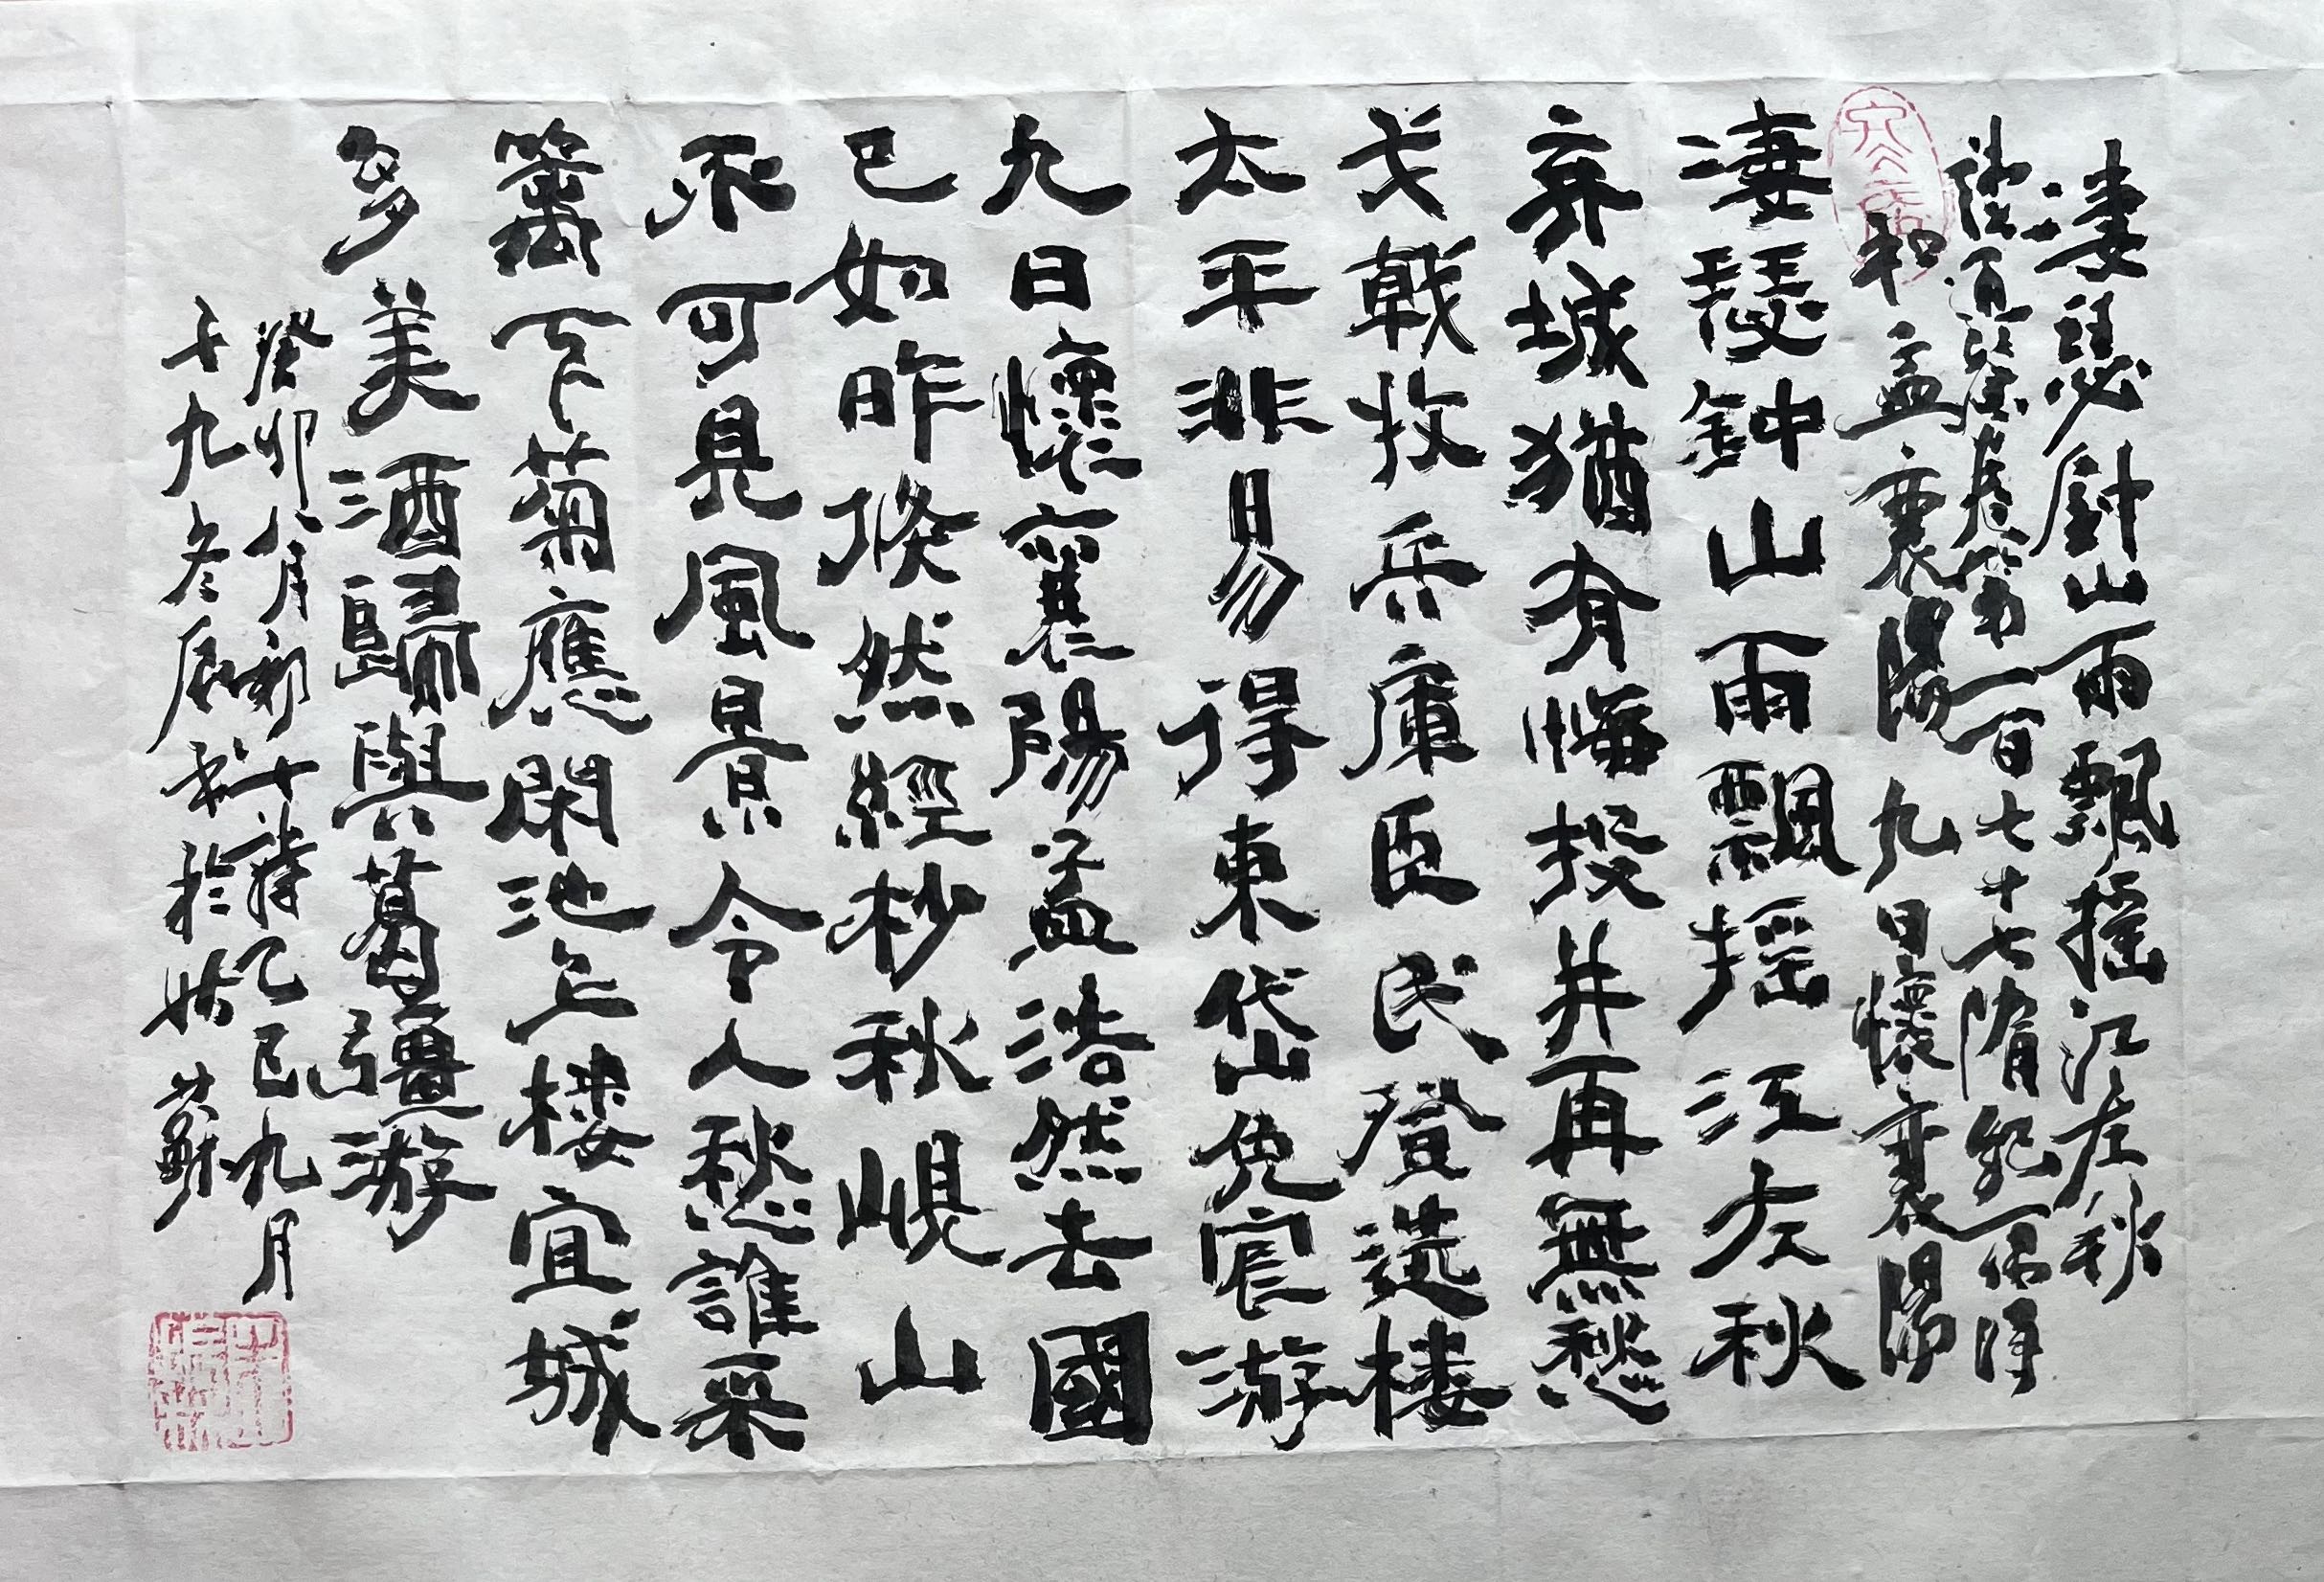 凄瑟鍾山雨飄搖江左秋
讀資治通鑑卷第一百七十七隋紀一有得
和孟襄陽九日懷襄陽
凄瑟鈡山雨飄揺江左秋
弃城猶有悔投井再無愁
戈戟放兵庫臣民登選樓
太平非易得東岱免宦游
九日懷襄陽孟浩然去國
已如昨倏然經杪秋峴山
不可見風景令人愁誰采
籬下菊應閑池上樓宜城
多美酒歸與葛彊游
癸卯八月初十詩乙巳九月
十九冬辰書於姑蘇